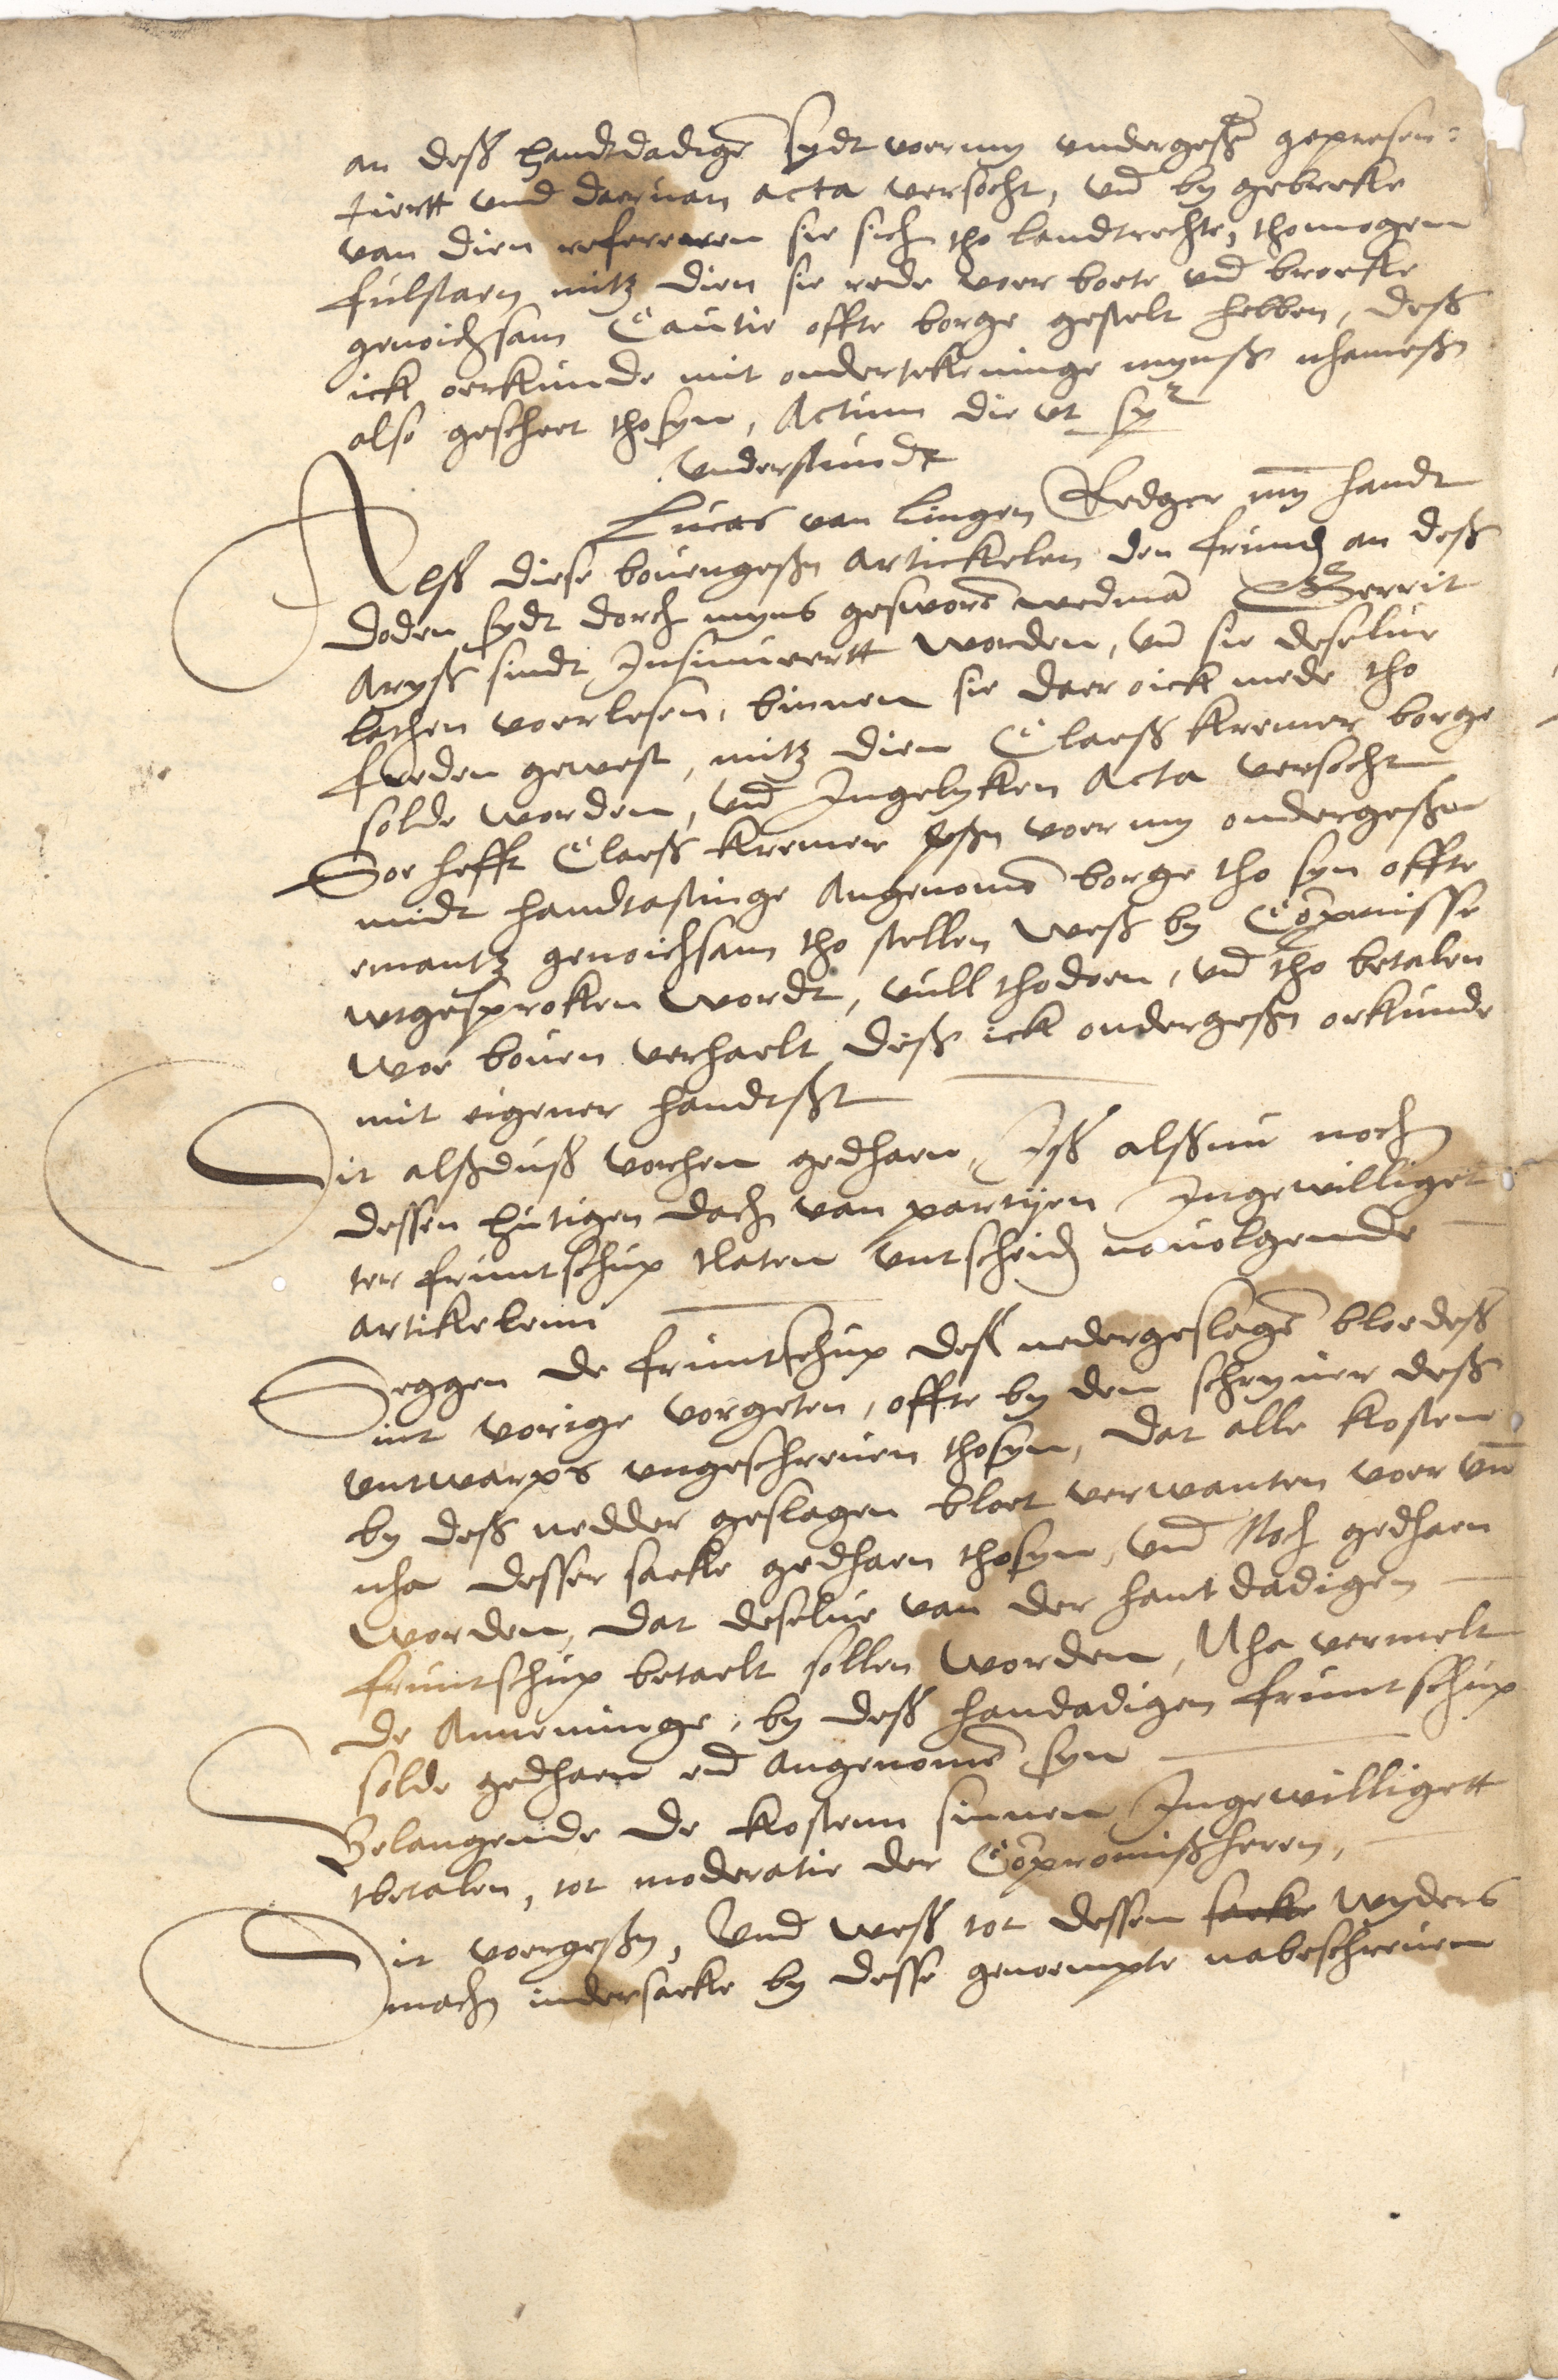 an deß handtdadigē sydt voer my undergeßr̄ gepresen=
tiertt und daervan acta versocht, vnd by gebreke
van dien refereren sie sich tho landtrechte, thomogem
fulstaen mitz dien sie rede voer boete vnd broeke
genoichsam Cautie offte borge gestelt hebben, deß
ick oerkunde mit ondertekeninge mynß nhameßn
also gescheet thosyn, Actum die vt spr
understundt
Lucas van Lingen Redger my handt
Aelß diese bovengeßn artickelen den frunden an deß
doden sydt dorch myns gesworē wedmā Gerrit
Aryß sindt Insinueertt worden, vn sie deselve
lathen voerlesen, binnen sie daer oick mede tho
freden gewest, mitz dien Claeß Kremer borge
solde worden, vnd Ingelyken Acta versocht
Soe hefft Claeß Kremer geßn voer my ondergeßen
midt handtastinge Angenomē borge tho syn offte
emantz genoichsam tho stellen weß by Cōpmisse
wtgesproken wordt, vull thodoen, vnd tho betalen
woe boven verhaelt diß ick ondergeßn orkunde
mit eigener handtßt
Dit alßduß vorhen gedhaen, Iß alßnu noch
dessen hutigen dach van partijen Ingewilliget
ter fruntschup tlaten vntscheiden navolgende
artikelenn
Seggen de fruntschup deß nedergeslagē bloedeß
int vorige vorgeten, offte by den schryver deß
vntwarps ungeschreven thosyn, dat alle kosten
by deß nedder geslagen bloet verwanten voer vn̄
nha desser saeke gedhaen thosyn, vnd Noch gedhaen
worden, dat deselve van der hantdadigen
fruntschup betaelt sollen worden, Nha vermelt
de Anneminge, by deß handadigen fruntschup
solde gedhaen vnd angenomē syn
Belangende de kostenn sinnen Ingewilligett
tbetalen, tot moderatie der Cōpromißheren,
Dit voergeßn, Vnd weß tot dessen saeke wyders
mach inder saeke by desse genoempte nabeschreven